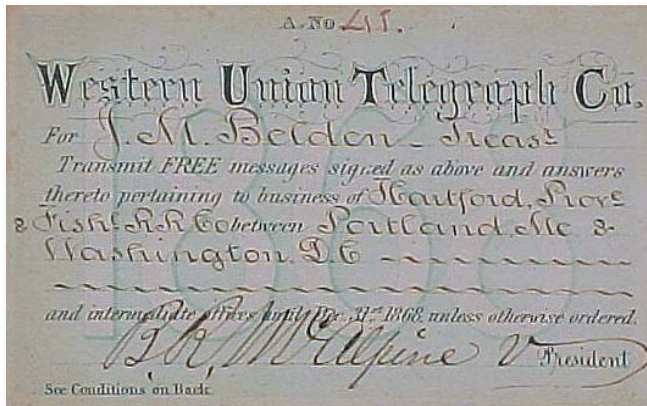 A. No 41.
Western Union Telegraph Co.
For J. M. Belden - Treasr
Transmit FREE messages signed as above and answers
thereto pertaining to business of Hartford, Prove
& Fishl R.R. Co between Portland, Me &
Washington D.C
and intermediate offices until Dec. 31st 1868, unless otherwise ordered.
B. R. McAlpine V President
See Conditions on Back.